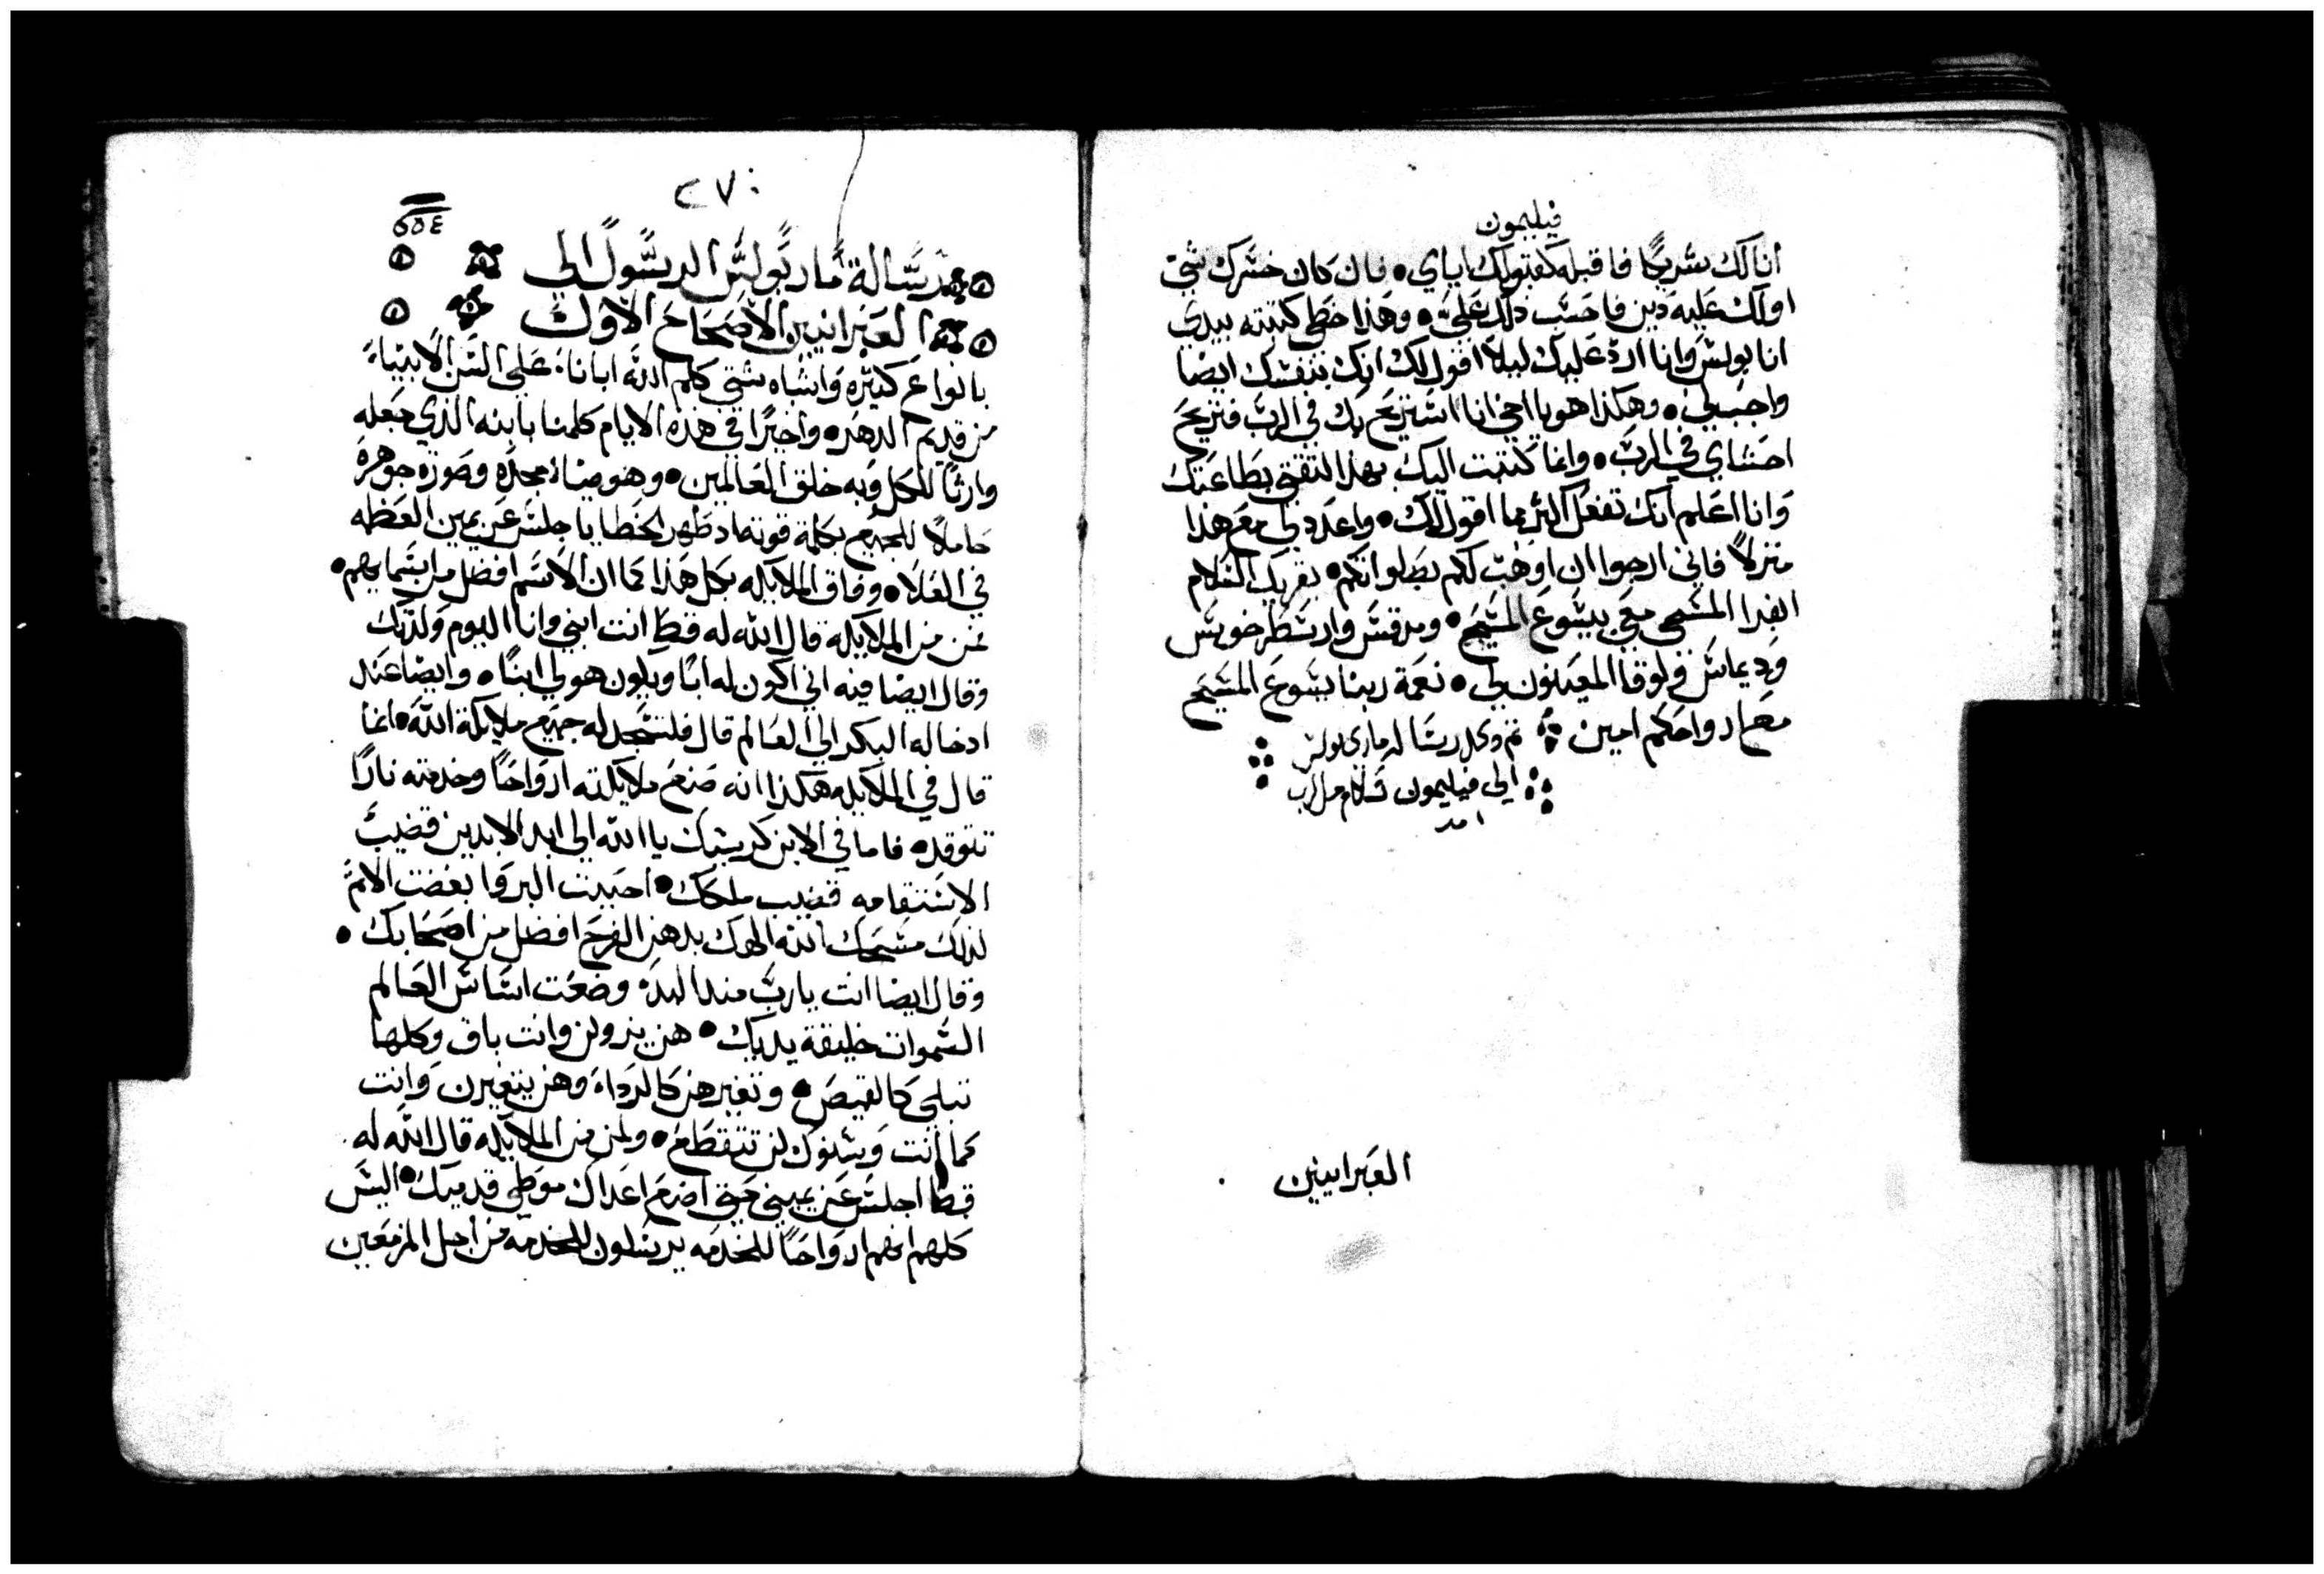 فيليمون
انا لك شريكا فاقبله كقبولك اياي • فان كان خسرك شي
او لك عليه دين فاحسب ذلك علي • وهذا خطي كتبته بيدي
انا بولس وانا ارد عليك ليلا اقول لك انك بنفسك ايضا
واجب لي • وهكذا هو يا اخي انا استريح بك في الرب فتريح
احشاي في الرب • وانما كتبت اليك بهذا لثقتي بطاعتك
وانا اعلم انك تفعل اكثر مما اقول لك • واعدد لي مع هذا
منزلاً فاني ارجوا ان اوهب لكم بطلواتكم • يقريك السلام
ابفرا المسبي معي بيسوع المسيح • ومرقس وارسطرخوس
وديماس ولوقا المعينون لي • نعمة ربنا يسوع المسيح
مع ارواحكم امين ⁘ تم وكمل رسالة ماري بولس
الي فيليمون بسلام من الرب
امين
العبرانيين
٢٧٠
رسالة مار بولس الرسول الي
العبرانيين الاصحاح الاول
بانواع كثيره واشباه شتي كلم الله ابانا علي السن الانبياء
من قديم الدهر • واخيرًا في هذه الايام كلمنا بابنه الذي جعله
وارثًا للكل وبه خلق العالمين • وهو ضياء مجده وصورة جوهره
حاملاً للجميع بكلمة قوته اذ طهر الخطايا جلس عن يمين العظمه
في العلاء • وفاق الملايكه بكل هذا كما ان الاسم افضل من اسمايهم •
لمن من الملايكه قال الله له قط انت ابني وانا اليوم ولدتك
وقال ايضا فيه اني اكون له ابًا ويكون هو لي ابنًا • وايضا عند
ادخاله البكر الي العالم قال فلتسجد له جميع ملايكة الله • انما
قال في الملايكه هكذا انه صنع ملايكته ارواحًا وخدمته نارًا
تتوقد • فاما في الابن كرسيك يا الله الي ابد الابدين قضيب
الاستقامه قضيب ملكك • احببت البر وابغضت الاثم
لذلك مسحك الله الهك بدهن الفرح افضل من اصحابك •
وقال ايضا انت يارب منذ البدء وضعت اساس العالم
السموات خليقة يديك • هن يزولن وانت باق وكلها
تبلي كالقميص • وتغيرهن كالرداء وهن يتغيرن وانت
كما انت وسنوك لن تنقطع • ولمن من الملايكه قال الله له
قط اجلس عن يميني حتي اضع اعداك موطي قدميك • اليس
كلهم انهم ارواحًا للخدمه يرسلون للخدمه من اجل المزمعين